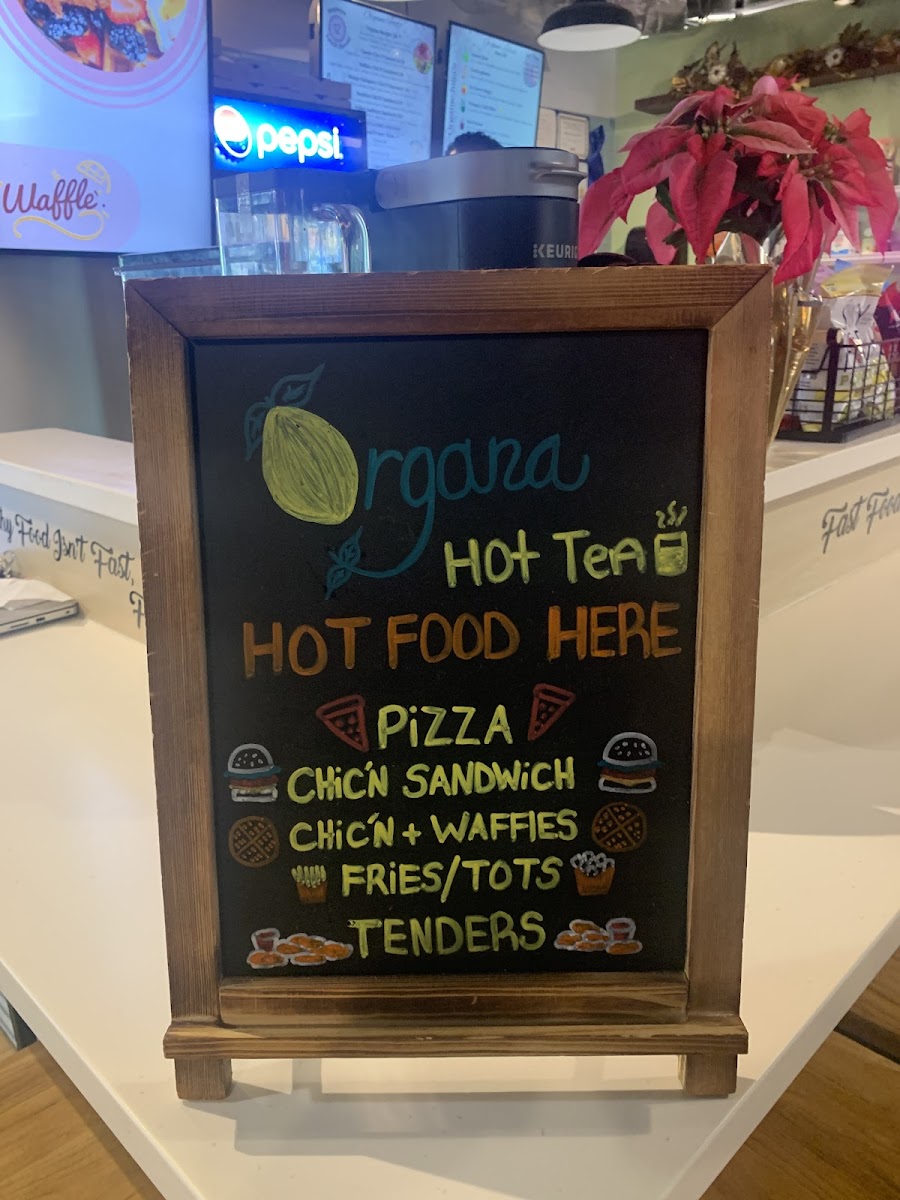 Waffle
pepsi
KEURIG
Organa
Hot Tea
HOT FOOD HERE
PiZZA
CHiC'N SANDWiCH
CHiC'N + WAFFlES
FRiES/TOTS
TENDERS
Food Isn't Fast,
Fast Food